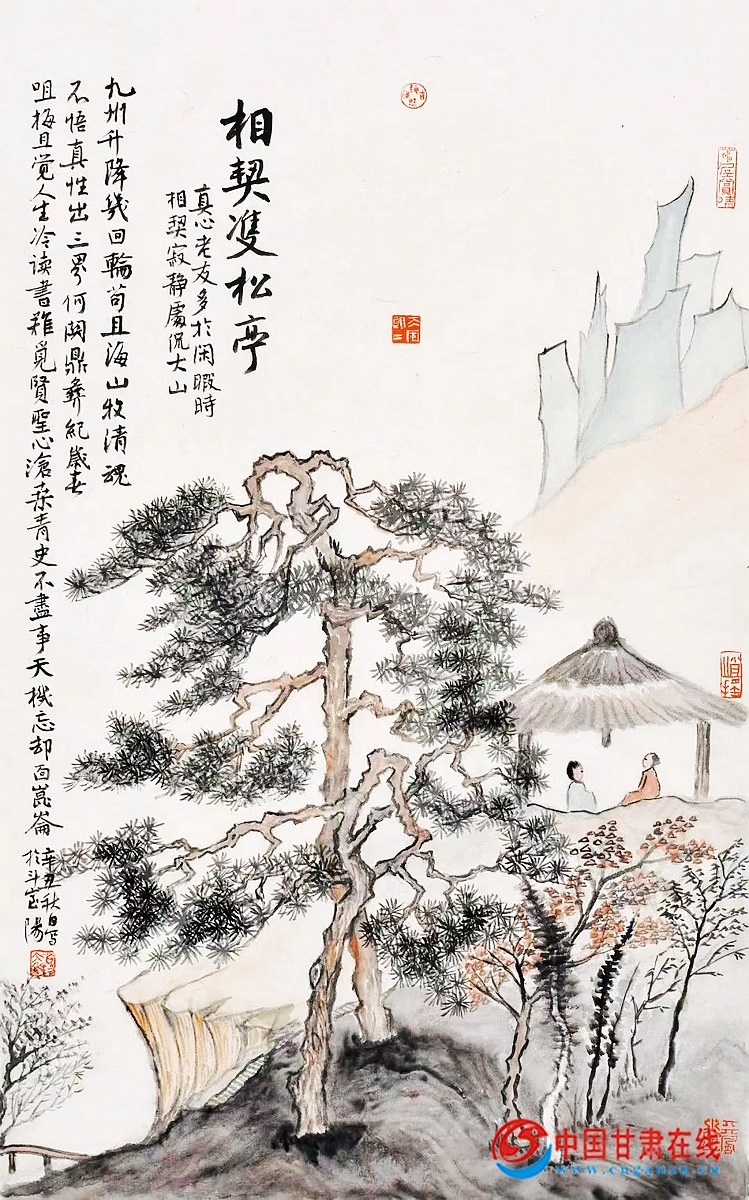 相契雙松亭
真心老友多於閑暇時
相契寂静處侃大山
九州升降幾回輪苟且海山牧清魂
不悟真性出三界何闕鼎彝紀歲春
咀梅且觉人生冷读書难覓賢聖心滄桑青史不盡事天機忘却百崑崙
辛丑秋日写
於斗陽
中国甘肃在线